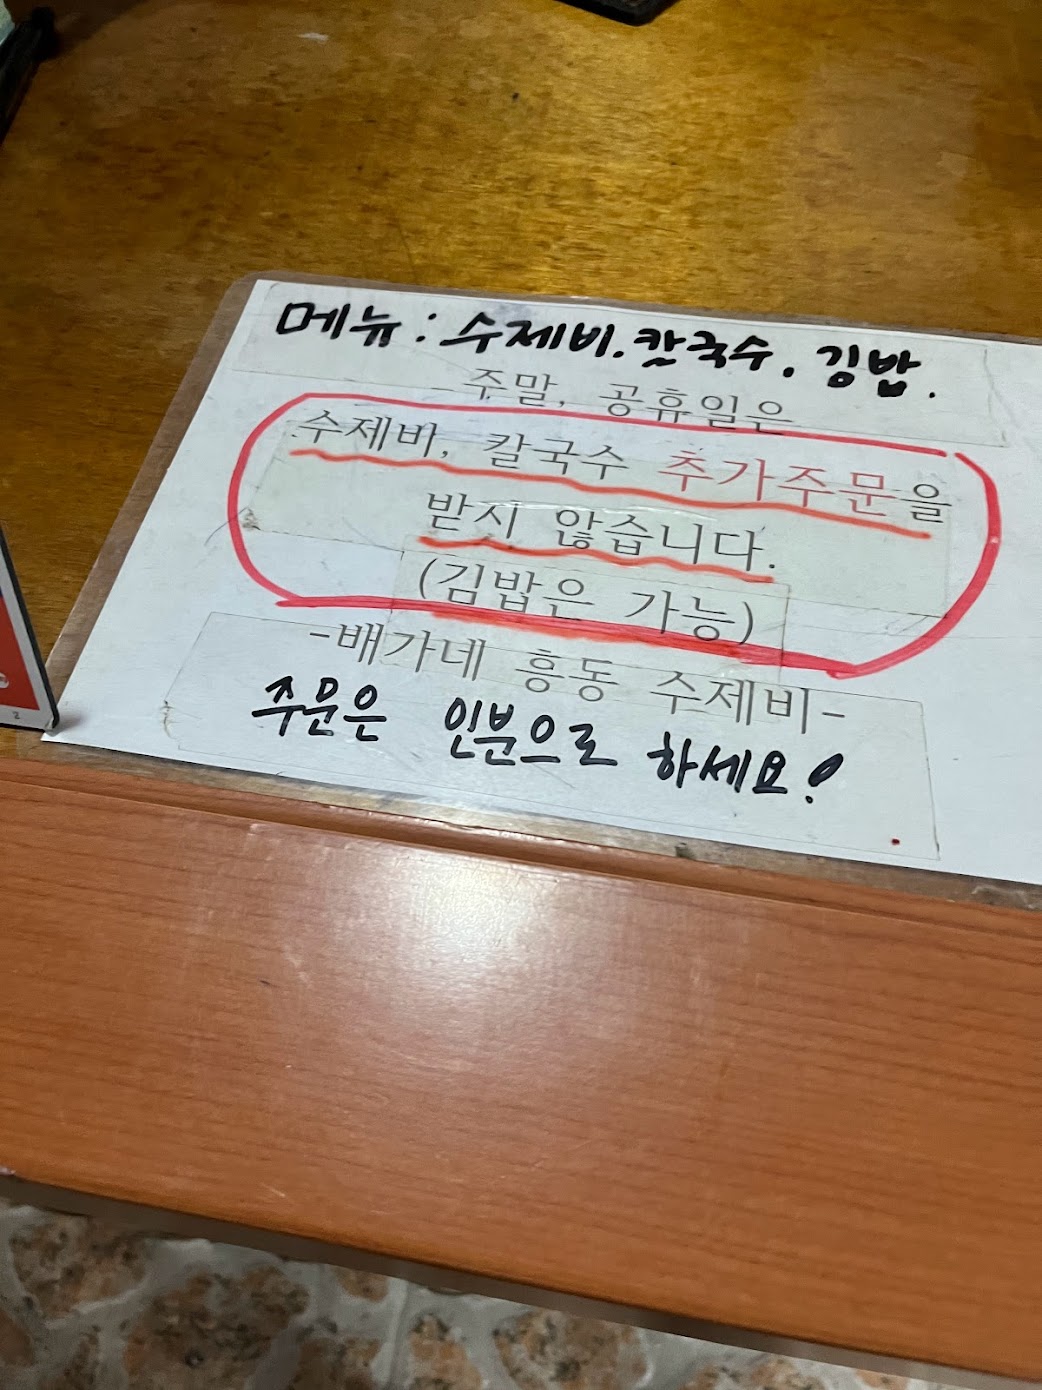 메뉴 : 수제비. 칼국수. 김밥.
주말, 공휴일은
수제비, 칼국수 추가주문을
받지 않습니다.
(김밥은 가능)
-배가네 흥동 수제비-
주문은 인분으로 하세요!
2